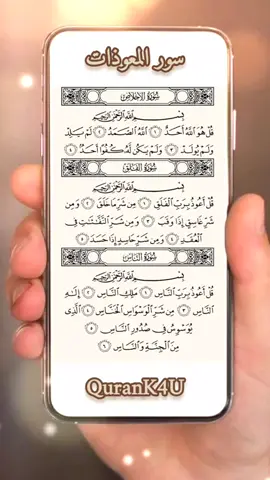 سور المعوذات
سُورَةُ الإِخْلَاصِ
بِسْمِ اللَّهِ الرَّحْمَٰنِ الرَّحِيمِ
قُلْ هُوَ اللَّهُ أَحَدٌ ١ اللَّهُ الصَّمَدُ ٢ لَمْ يَلِدْ
وَلَمْ يُولَدْ ٣ وَلَمْ يَكُن لَّهُ كُفُوًا أَحَدٌ ٤
سُورَةُ الفَلَقِ
بِسْمِ اللَّهِ الرَّحْمَٰنِ الرَّحِيمِ
قُلْ أَعُوذُ بِرَبِّ الْفَلَقِ ١ مِن شَرِّ مَا خَلَقَ ٢ وَمِن
شَرِّ غَاسِقٍ إِذَا وَقَبَ ٣ وَمِن شَرِّ النَّفَّاثَاتِ فِي
الْعُقَدِ ٤ وَمِن شَرِّ حَاسِدٍ إِذَا حَسَدَ ٥
سُورَةُ النَّاسِ
بِسْمِ اللَّهِ الرَّحْمَٰنِ الرَّحِيمِ
قُلْ أَعُوذُ بِرَبِّ النَّاسِ ١ مَلِكِ النَّاسِ ٢ إِلَٰهِ
النَّاسِ ٣ مِن شَرِّ الْوَسْوَاسِ الْخَنَّاسِ ٤ الَّذِي
يُوَسْوِسُ فِي صُدُورِ النَّاسِ ٥
مِنَ الْجِنَّةِ وَالنَّاسِ ٦
QuranK4U